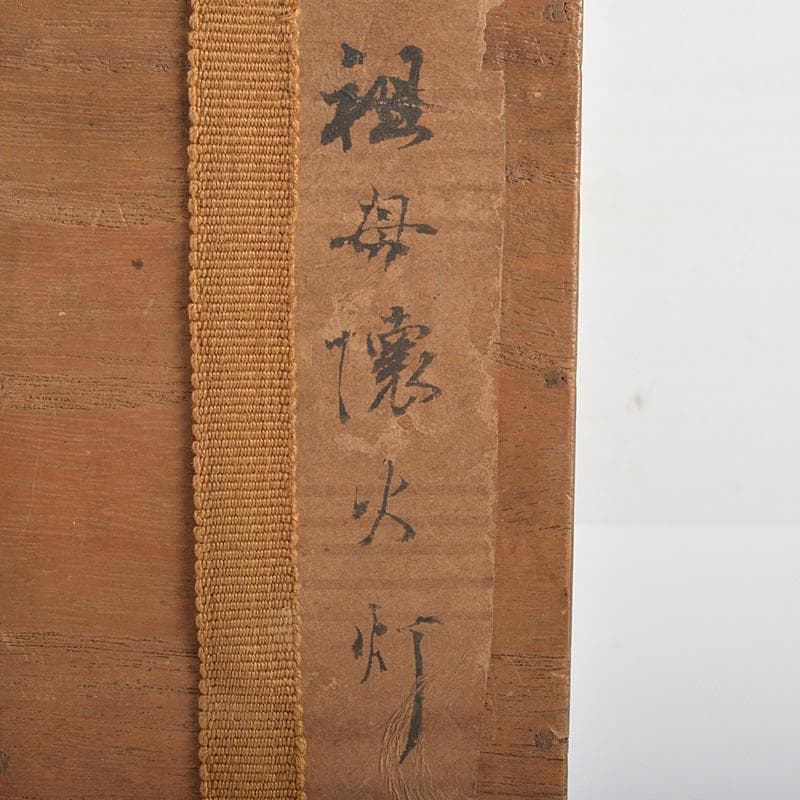 祖母懐火灯